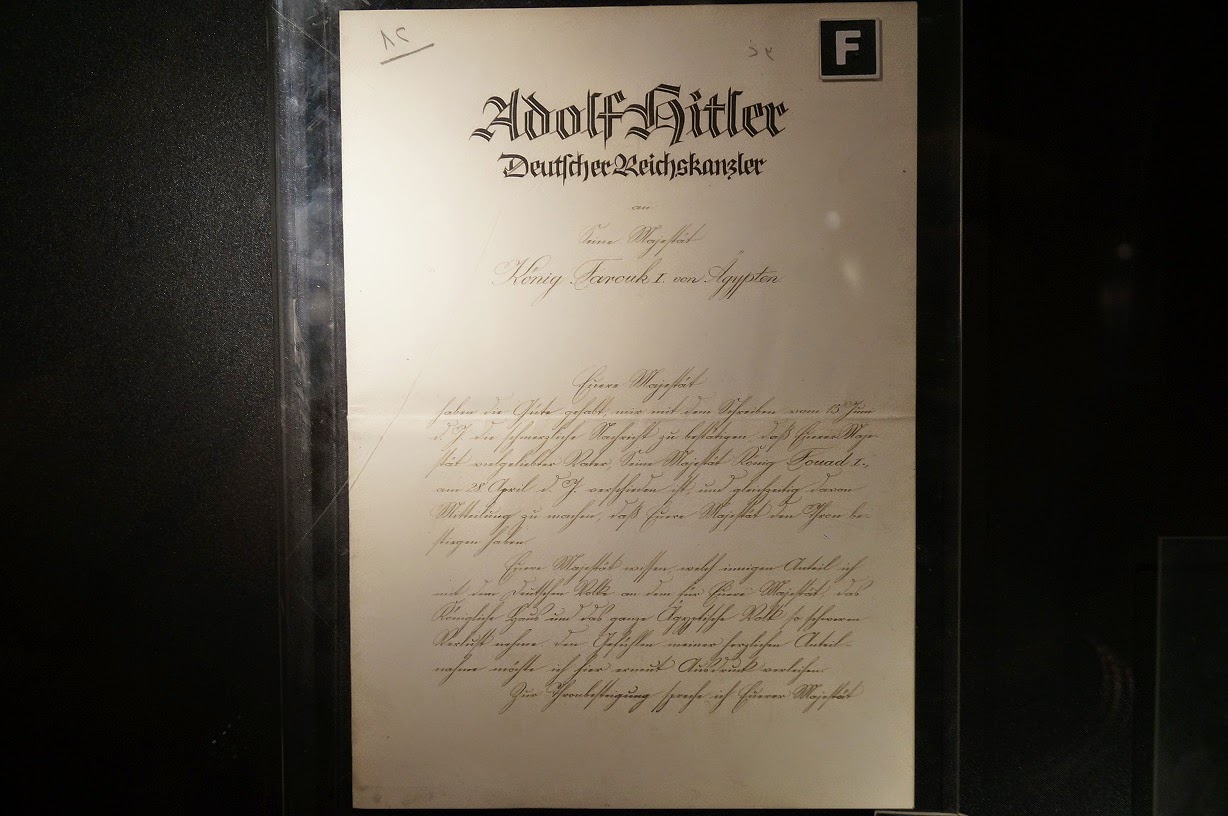 F
Adolf Hitler
Deutscher Reichskanzler
an
Seine Majestät
König Farouk I. von Ägypten
Euere Majestät
haben die Güte gehabt, mir mit dem Schreiben vom 15. Juni
d. J. die schmerzliche Nachricht zu bestätigen, daß Euerer Maje-
stät vielgeliebter Vater, Seine Majestät König Fouad I.,
am 28. April d. J. verschieden ist, und gleichzeitig davon
Mitteilung zu machen, daß Euere Majestät den Thron be-
stiegen haben.
Euere Majestät wissen, welch innigen Anteil ich
mit dem Deutschen Volke an dem für Euere Majestät, das
Königliche Haus und das ganze Ägyptische Volk so schweren
Verlust nehme. Den Gefühlen meiner herzlichen Anteil-
nahme möchte ich hier erneut Ausdruck verleihen.
Zur Thronbesteigung spreche ich Euerer Majestät